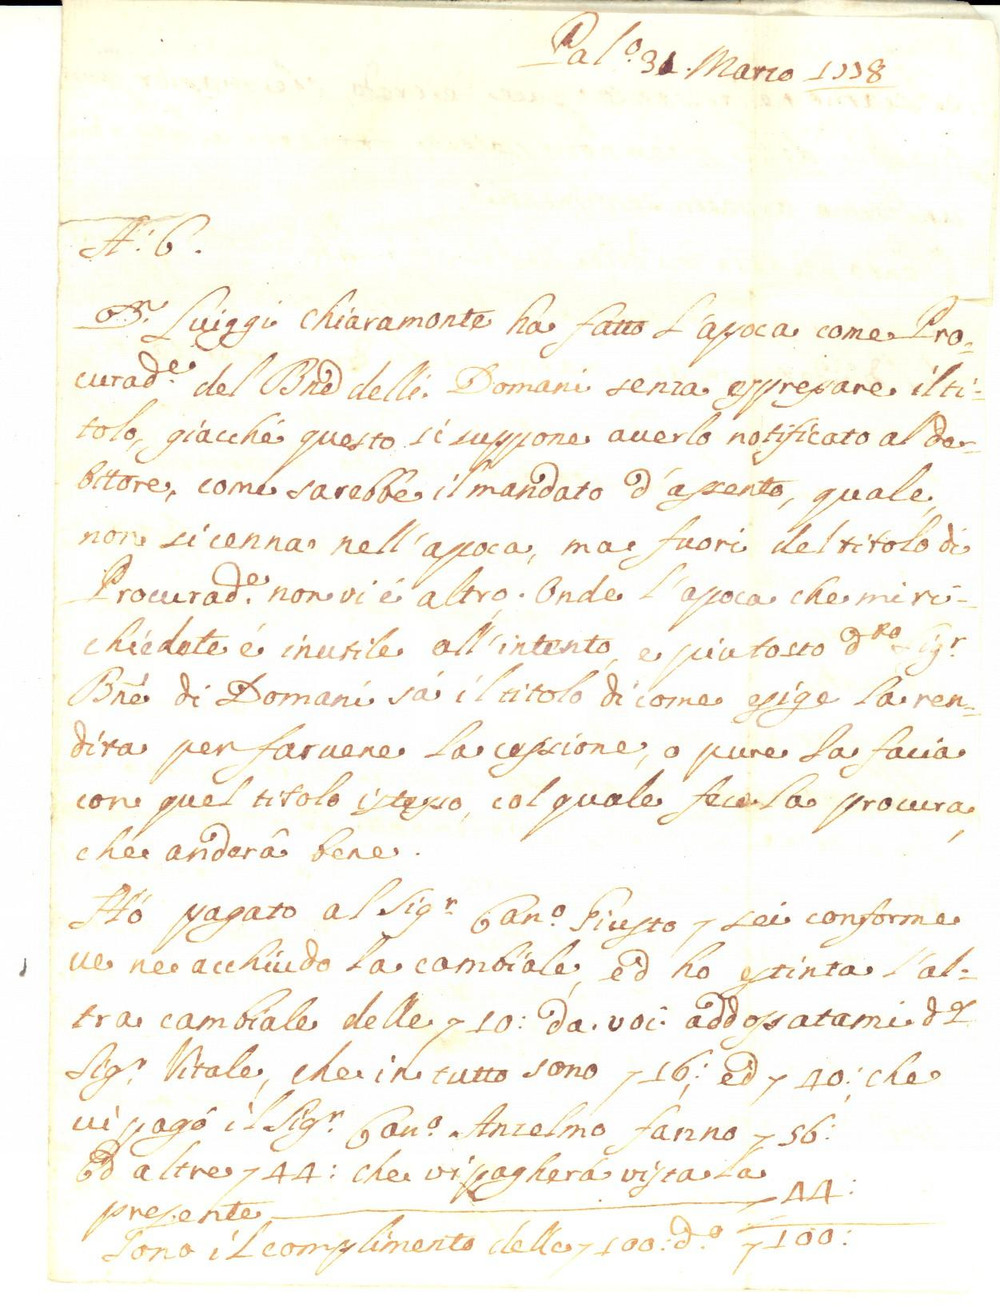 Pal.º 31. Marzo 1778
A. C.
Dn. Luiggi Chiaramonte ha fatto l'apoca come Pro-
curad.e del Bne.d delli Domani senza esspresare il ti-
tolo, giacché questo si suppone averlo notificato al de-
bitore, come sarebbe il mandato d'assento, quale
non si cenna nell'apoca, ma fuori del titolo di
Procurad.e non vi é altro. Onde l'apoca che mi ri-
chiedete é inutile all'intento, e piutosto d.to Sig.r
Bne. di Domani sá il titolo di come esige la ren-
dita per farvene la cessione, o pure la facia
con quel titolo istesso, col quale fece la procura,
che anderâ bene.
Hó pagato al Sig.r Can.º Giusto 7 sei conforme
ve ne acchiudo la cambiale, ed ho estinta l'al-
tra cambiale delle 7 10: da voi addossatami d.l
Sig.r Vitale, che in tutto sono 7 16: ed 7 40: che
vi pagô il Sig.r Can.º Anzelmo fanno 7 56:
Ed altre 7 44: che vi pagherá vista la
presente 7 44:
Sono il complimento delle 7 100: d.º 7 100: